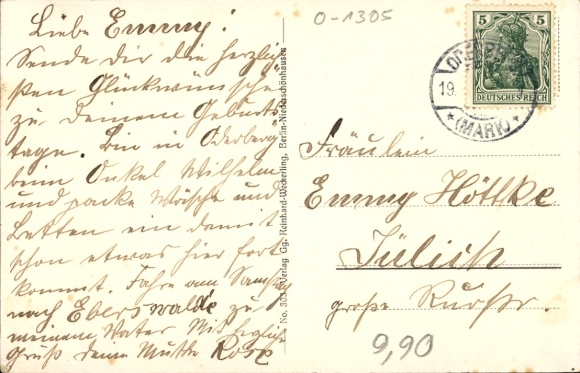 O-1305
Liebe Emmy!
Sende dir die herzlich-
sten Glückwünsche
zu deinem Geburts
tage. Bin in Oderberg
beim Onkel Wilhelm
und packe Wäsche und
Betten ein damit
schon etwas hier fort
kommt. Fahre am Samstag
nach Eberswalde zu
meinem Vater Mit herzlich
Gruß deine Mutter Rose
Verlag Gg. Reinhard-Weckerling, Berlin-Niederschönhausen
No. 303
5 5
DEUTSCHES REICH
19
*(MARK)*
Fräulein
Emmy Höttke
Jülich
große Rurstr.
9,90